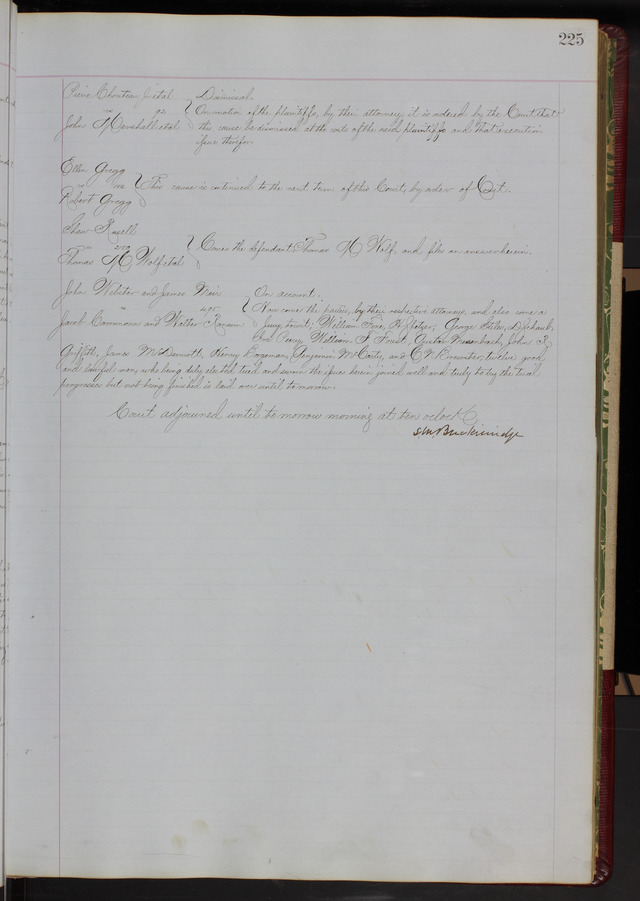 225
Pierre Chouteau Jr etal Dismissal.
vs 92 On motion of the plaintiffs, by their attorney, it is ordered by the Court, that
John M Marshall etal the cause be dismissed at the costs of the said plaintiffs and that execution
issue therefor.
Ellen Gregg
vs This cause is continued to the next term of this Court, by order of Court.
Robert Gregg
vs Comes the defendant, Thomas M Wolf, and files an answer herein.
Thomas M Wolf etal
John Webster and James Moir On account.
vs Now come the parties, by their respective attorneys, and also come a
Jacob Cammann and Walter Jury towit; William Fine, George Stiles,
William S Frost, John R
Griffith, James McDermott, Henry Benjamin McCarty, and twelve good
and lawful men, who being duly elected tried and sworn the issue herein joined well and truly to try the trial
progresses but not being finished is laid over until tomorrow.
Court adjourned until to morrow morning at ten oclock
S M Breckinridge